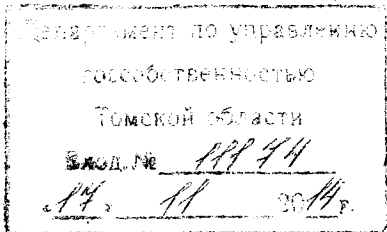 Департамент по управлению
госсобственностью
Томской области
Вход. № 11174
«17» 11 2014 г.